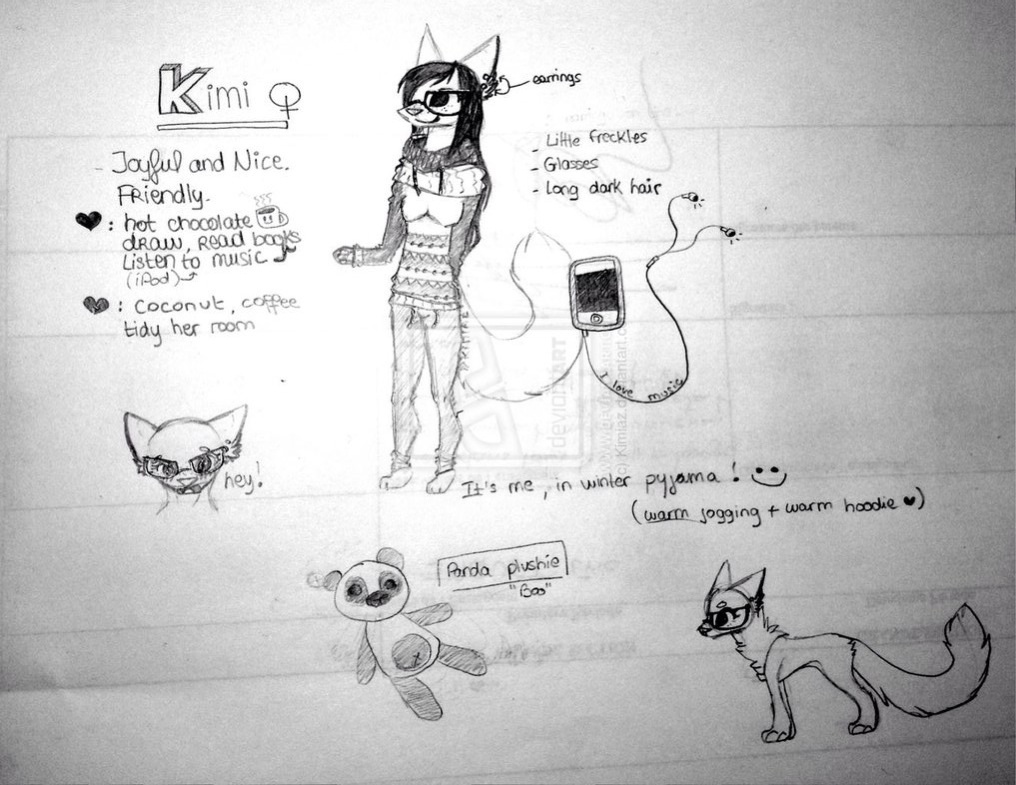 Kimi ♀
- Joyful and Nice.
Friendly.
♥ : hot chocolate
draw, read books
Listen to music
(iPod)
♥ : coconut, coffee
tidy her room
earrings
- Little freckles
- Glasses
- Long dark hair
I love music
hey!
It's me, in winter pyjama ! :)
(warm jogging + warm hoodie ♥)
Panda plushie
"Boo"
deviantART